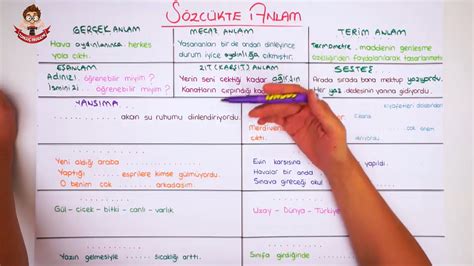 SÖZCÜKTE ANLAM
GERÇEK ANLAM
Hava aydınlanınca herkes
yola çıktı.
MECAZ ANLAM
Yaşananları bir de ondan dinleyince
durum iyice aydınlığa çıkmıştı.
TERİM ANLAM
Termometre, maddelerin genleşme
özelliğinden faydalanılarak tasarlanmıştır.
EŞANLAM
Adınızı .. öğrenebilir miyim?
İsminizi .. öğrenebilir miyim?
ZIT (KARŞIT) ANLAM
Yerin seni çektiği kadar ağırsın
Kanatların çırpındığı kadar
SESTEŞ
Arada sırada bana mektup yazıyordu.
Her yaz dedesinin yanına gidiyordu.
YANSIMA
akan su ruhumu dinlendiriyordu.
kıyafetleri
Merdiven
çıktı.
Yeni aldığı araba
Yaptığı esprilere kimse gülmüyordu.
O benim çok arkadaşım.
Evin karşısına yapıldı.
Havalar bir anda
Sınava gireceği okul
Gül - çiçek - bitki - canlı - varlık
Uzay - Dünya - Türkiye
Yazın gelmesiyle sıcaklığı arttı.
Sınıfa girdiğinde